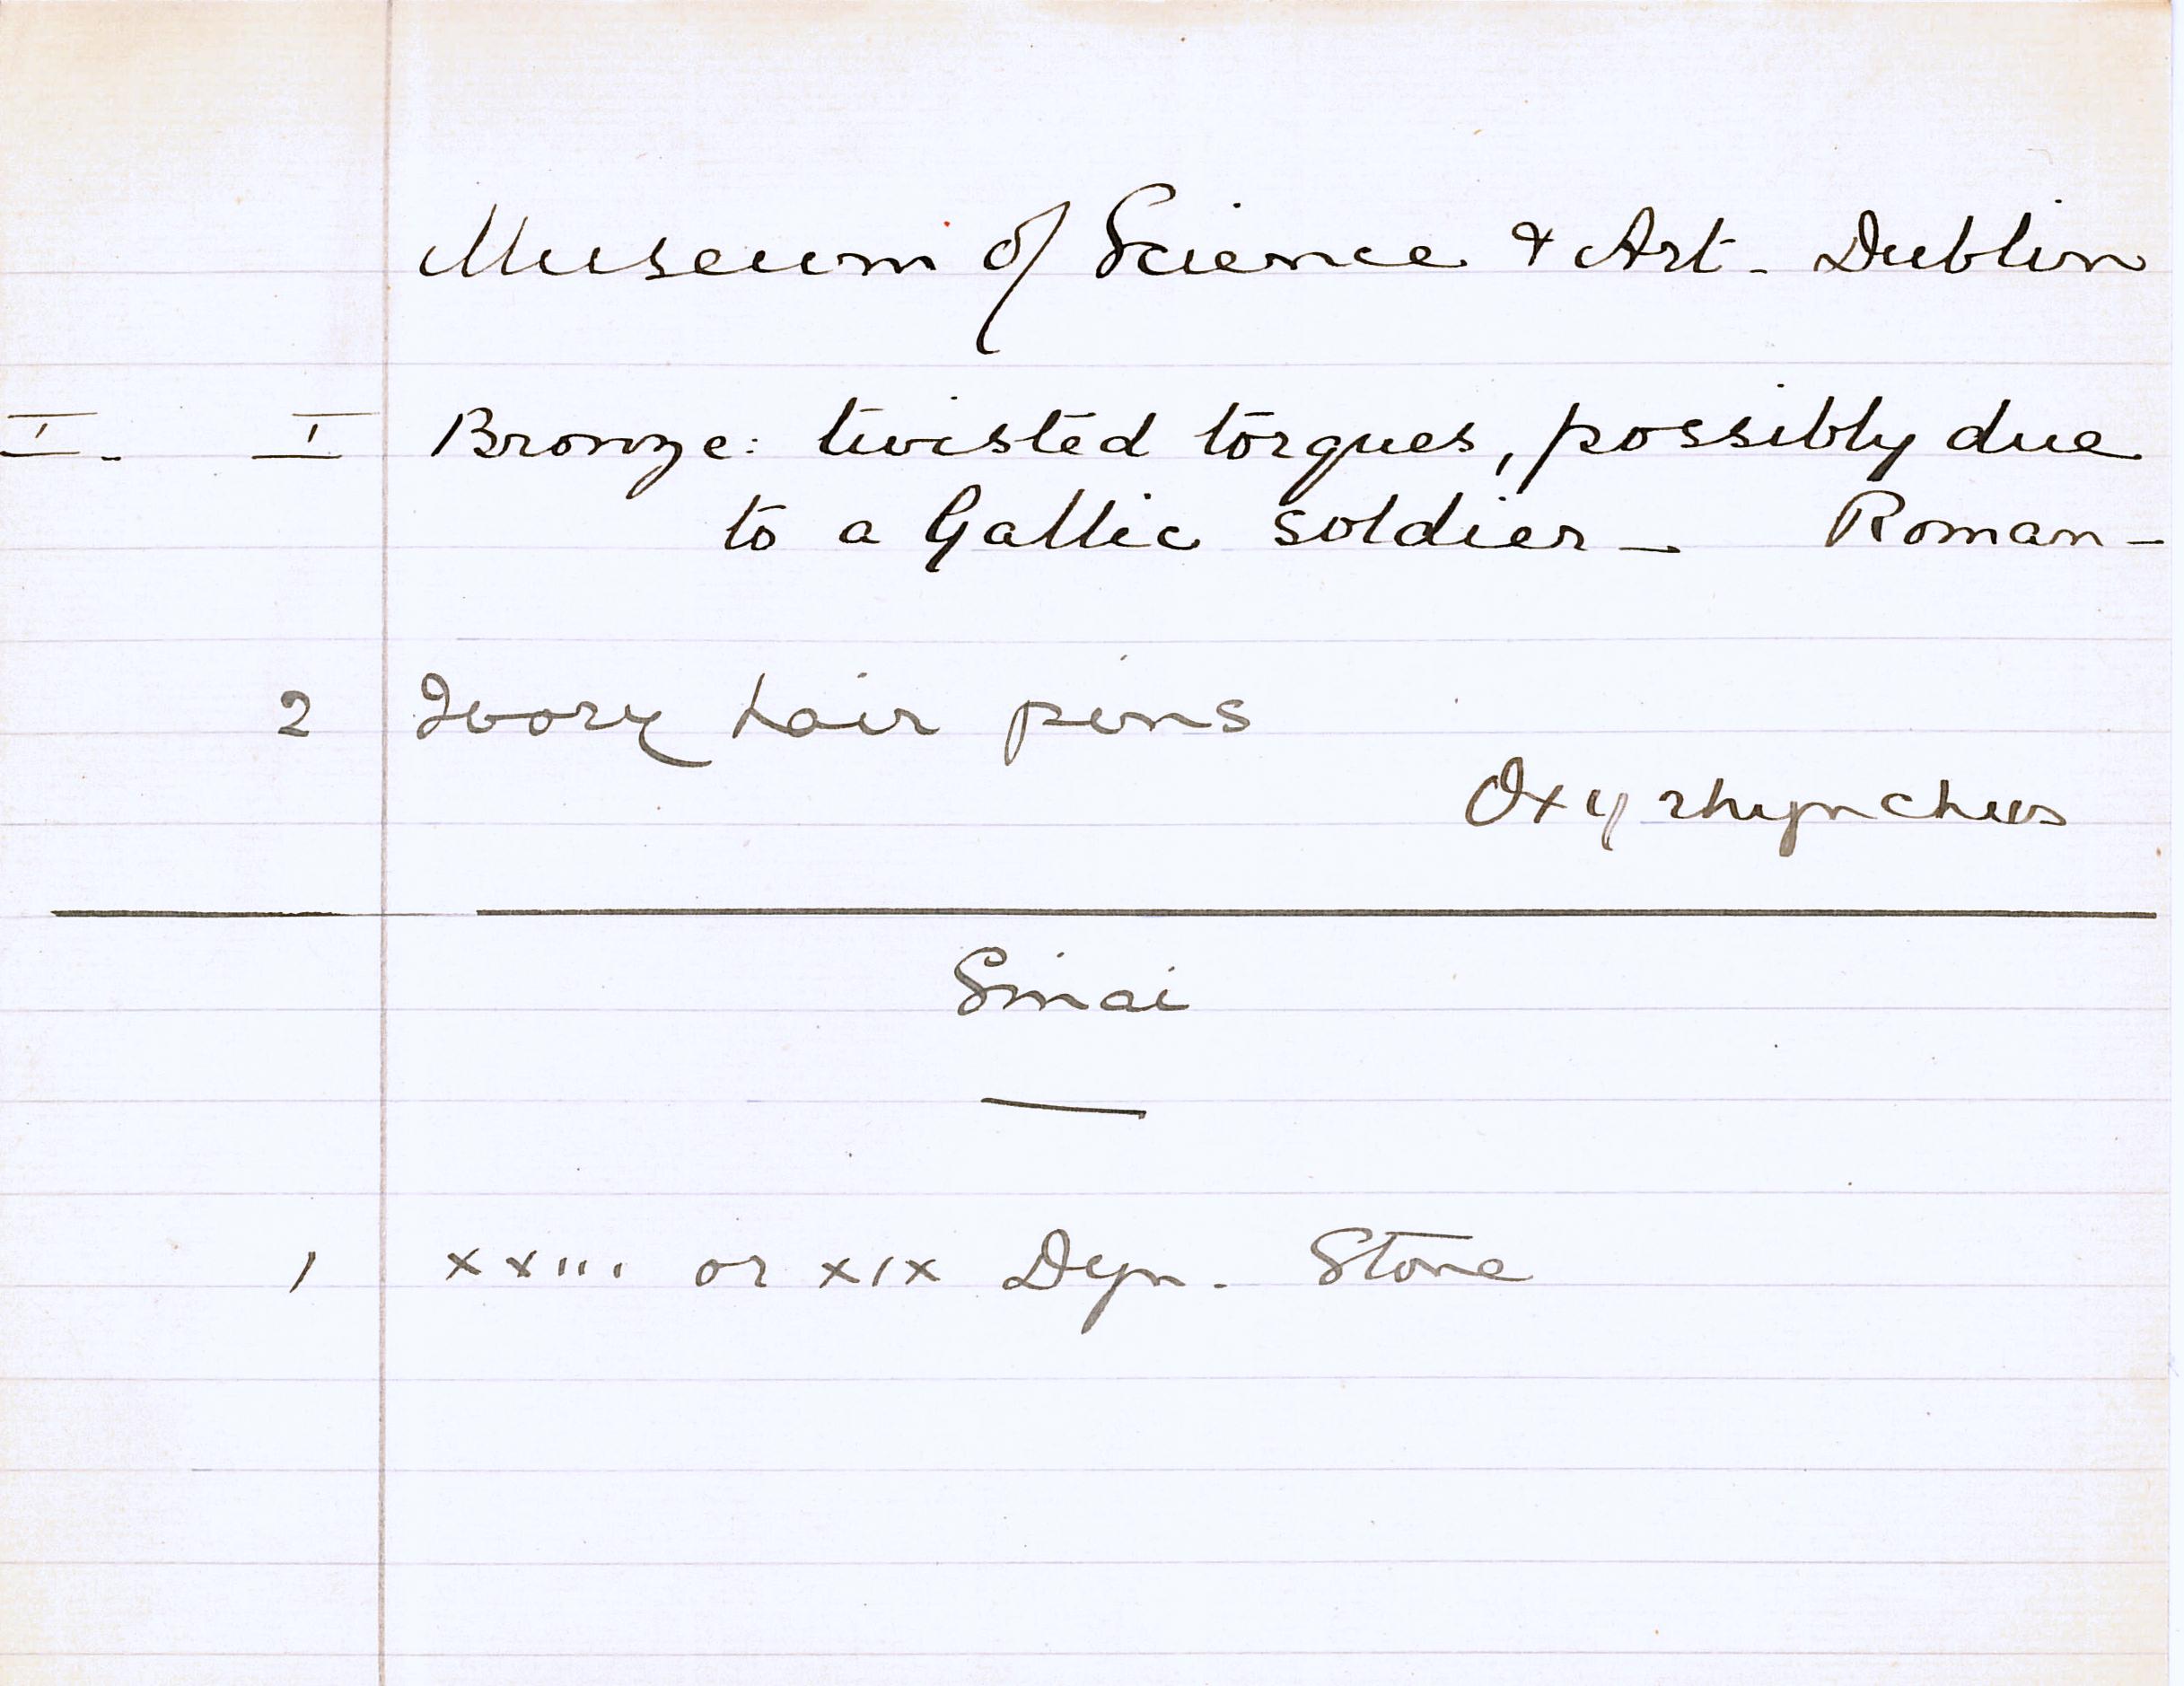 Museum of Science & Art - Dublin
I. I Bronze: twisted torques, possibly due
to a Gallic soldier - Roman -
2 Ivory hair pins
Oxyrhynchus
Sinai
1 xxiii or xix Dyn. Stone